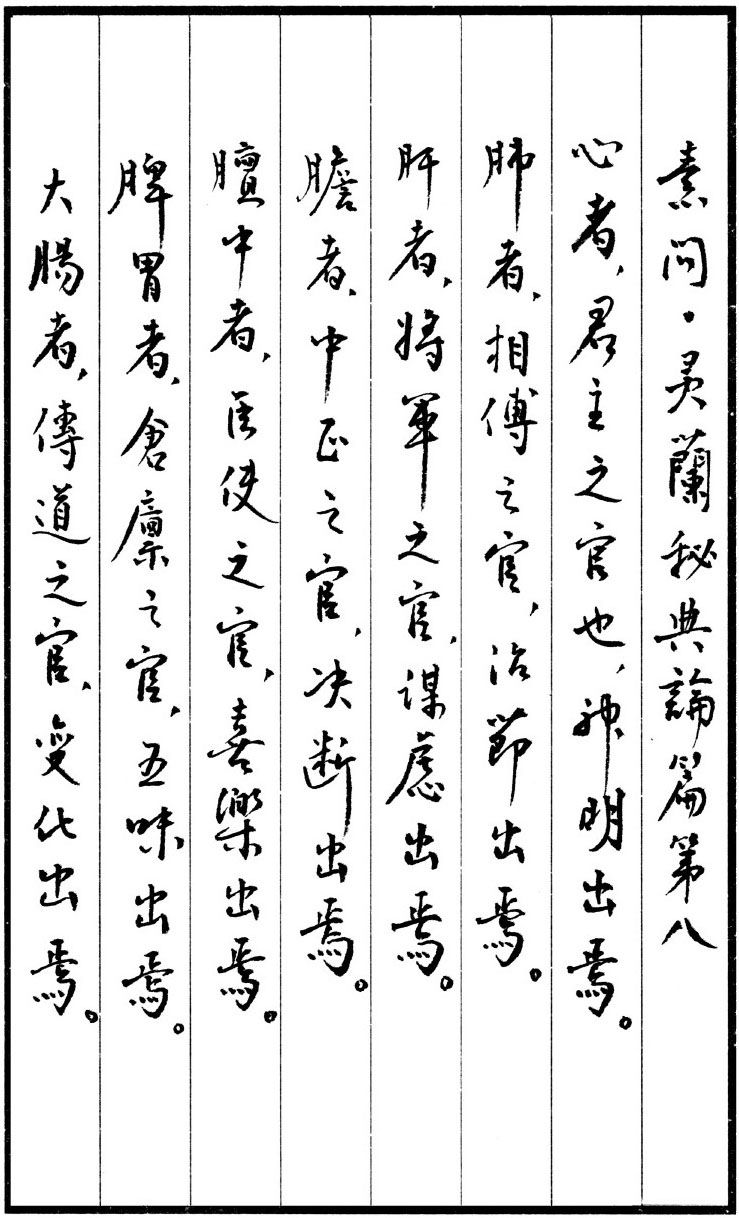 素问·灵蘭秘典論篇第八
心者，君主之官也，神明出焉。
肺者，相傅之官，治節出焉。
肝者，将軍之官，謀慮出焉。
膽者，中正之官，决断出焉。
膻中者，臣使之官，喜樂出焉。
脾胃者，倉廩之官，五味出焉。
大腸者，傳道之官，变化出焉。